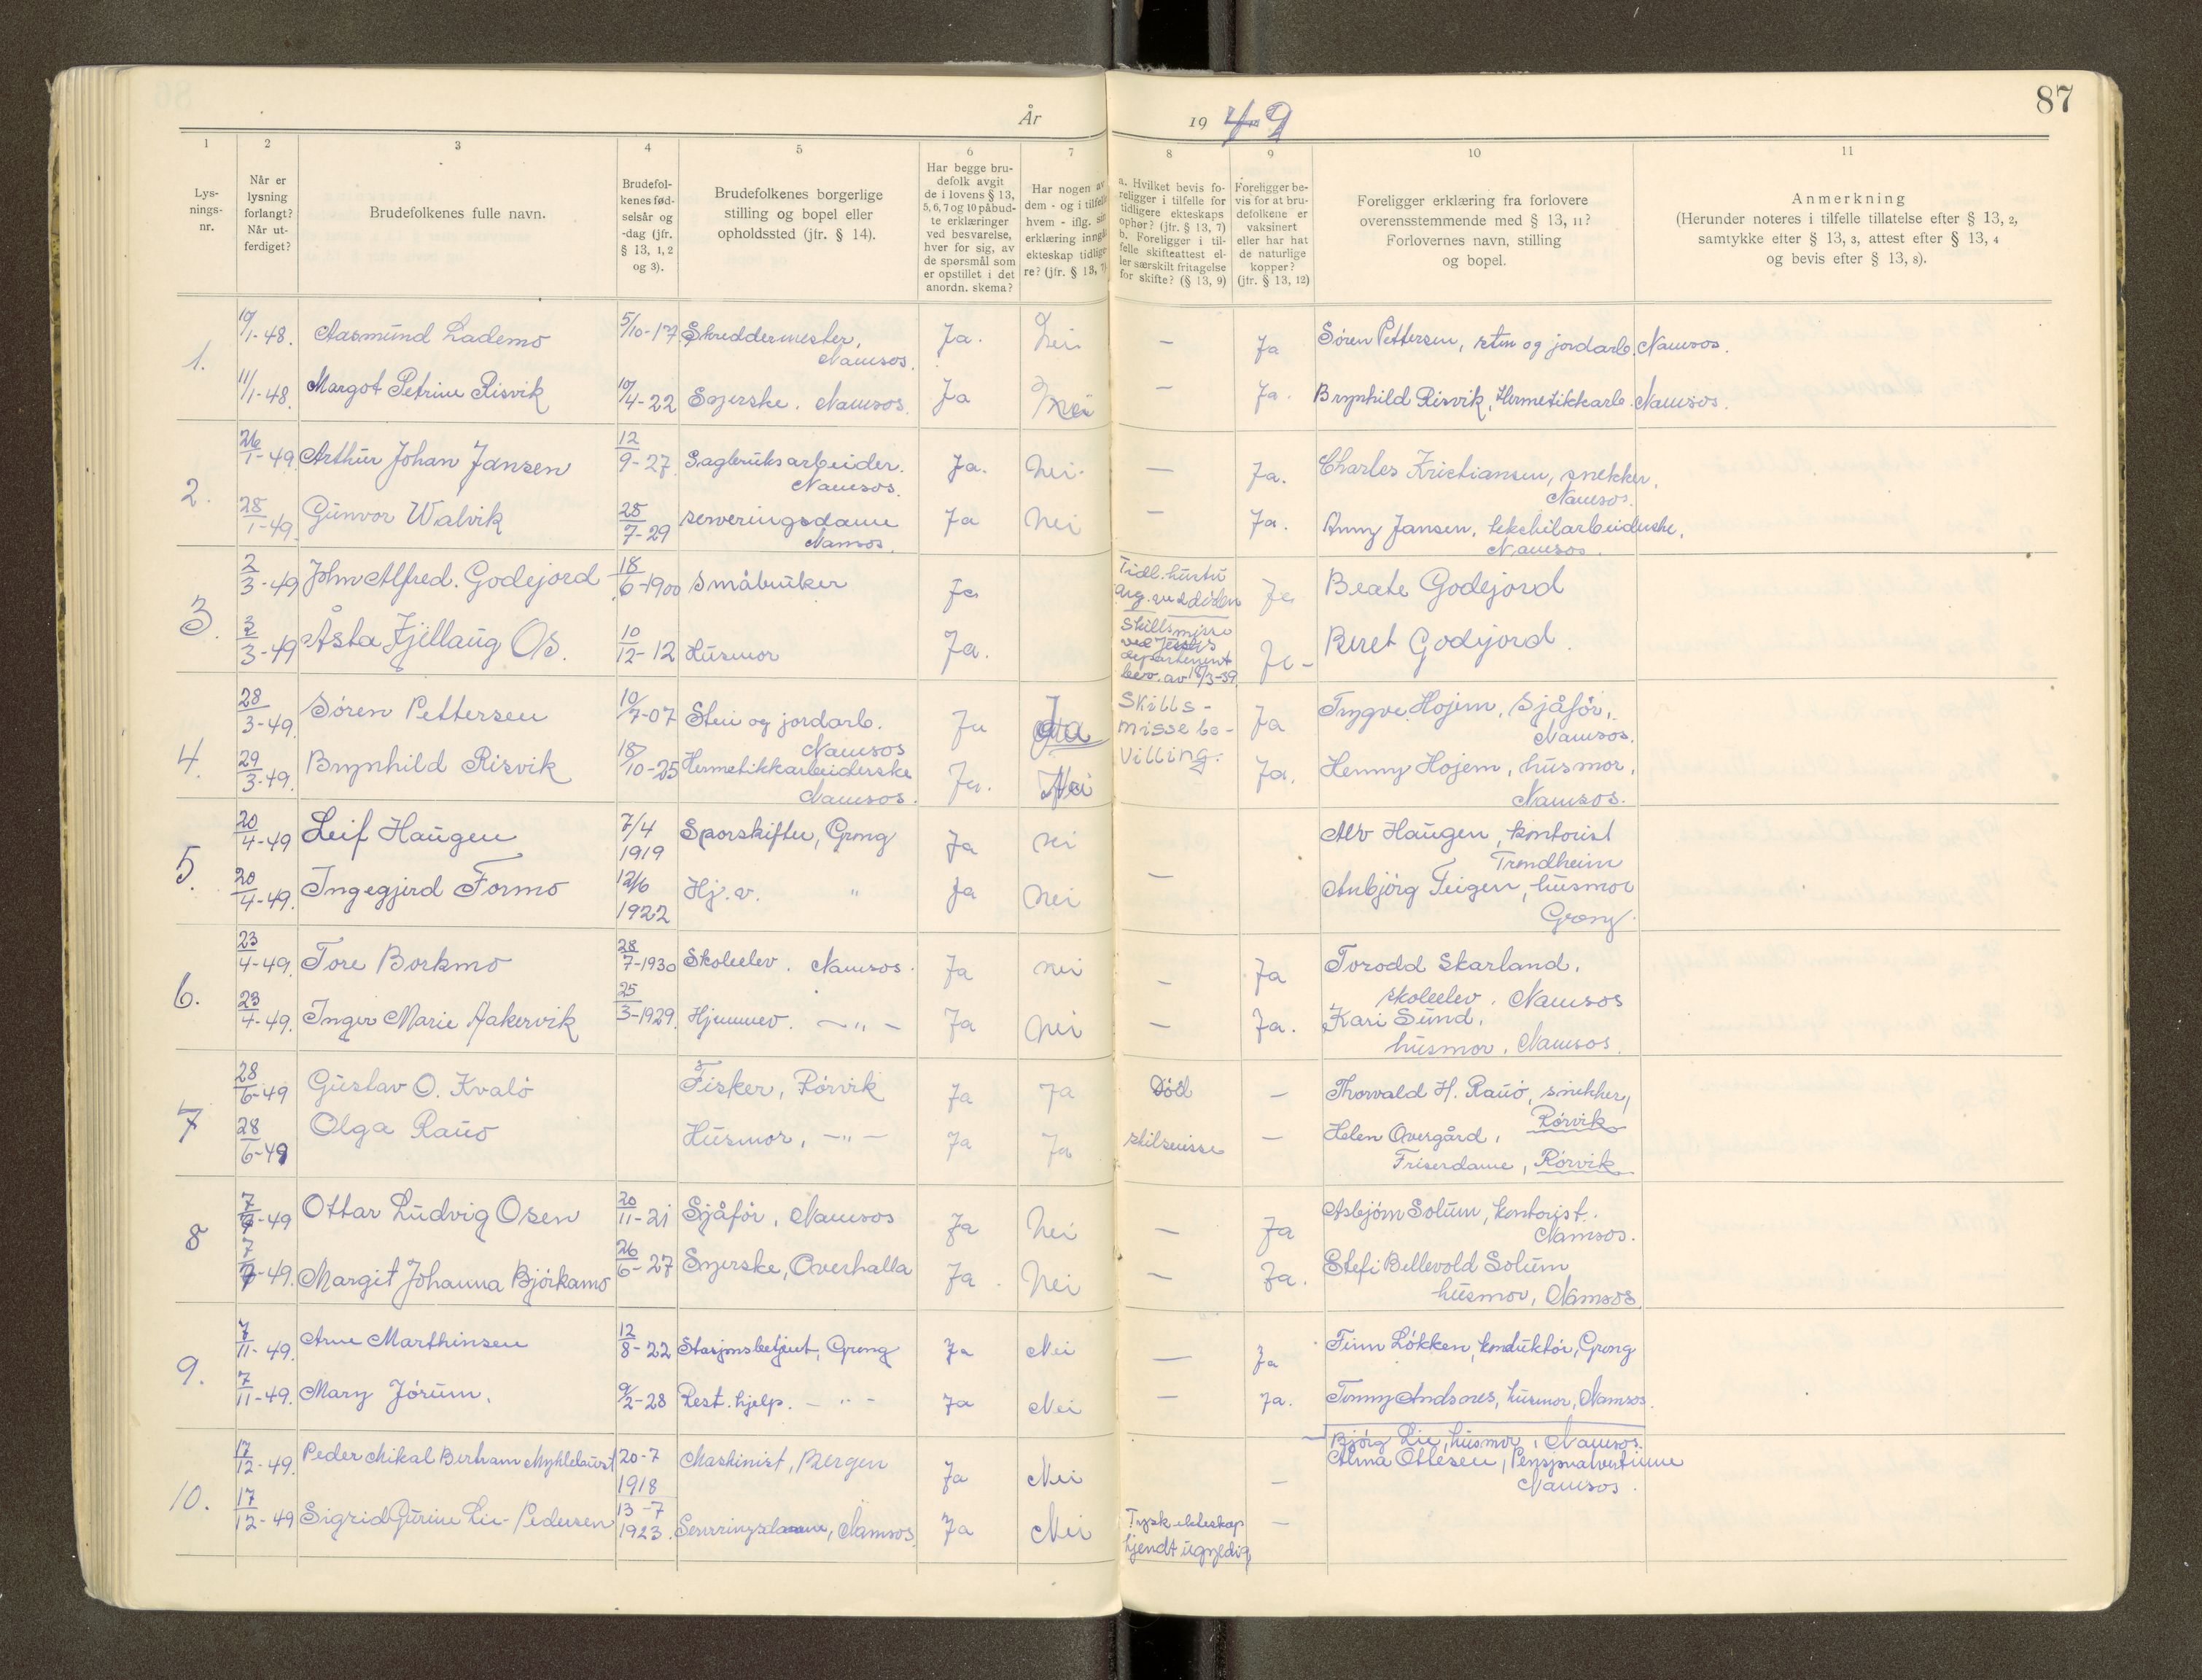 87
År 19 49
1 2 3 4 5 6 7 8 9 10 11
Lys-
nings-
nr.
Når er
lysning
forlangt?
Når ut-
ferdiget?
Brudefolkenes fulle navn.
Brudefol-
kenes fød-
selsår og
-dag (jfr.
§ 13, 1, 2
og 3).
Brudefolkenes borgerlige
stilling og bopel eller
opholdssted (jfr. § 14).
Har begge bru-
defolk avgit
de i lovens § 13,
5, 6, 7 og 10 påbud-
te erklæringer
ved besvarelse,
hver for sig, av
de spørsmål som
er opstillet i det
anordn. skema?
Har nogen av
dem - og i tilfelle
hvem - iflg. sin
erklæring inngått
ekteskap tidlige-
re? (jfr. § 13, 7)
a. Hvilket bevis fo-
religger i tilfelle for
tidligere ekteskaps
ophør? (jfr. § 13, 7)
b. Foreligger i til-
felle skifteattest el-
ler særskilt fritagelse
for skifte? (§ 13, 9)
Foreligger be-
vis for at bru-
defolkene er
vaksinert
eller har hat
de naturlige
kopper?
(jfr. § 13, 12)
Foreligger erklæring fra forlovere
overensstemmende med § 13, 11?
Forlovernes navn, stilling
og bopel.
Anmerkning
(Herunder noteres i tilfelle tillatelse efter § 13, 2,
samtykke efter § 13, 3, attest efter § 13, 4
og bevis efter § 13, 8).
1.
10/1-48. Aasmund Lademo 5/10-17 Skreddermester, Namsos. Ja. Nei — Ja Søren Pettersen, sten og jordarb. Namsos.
11/1-48. Margot Petrine Risvik 10/4-22 Syerske. Namsos. Ja Nei — Ja. Brynhild Risvik, Hermetikkarb. Namsos.
2.
26/1-49 Arthur Johan Jansen 12/9-27 Sagbruksarbeider. Namsos. Ja. Nei. — Ja. Charles Kristiansen, snekker, Namsos.
28/1-49. Gunvor Walvik 25/7-29 serveringsdame Namsos. Ja Nei — Ja. Anny Jansen, tekstilarbeiderske, Namsos.
3.
2/3-49 John Alfred. Godejord 18/6-1900 småbruker Ja Tidl. hustru avg. ved døden Ja Beate Godejord
3/3-49 Åsta Fjellaug Os. 10/12-12 Husmor Ja. Skillsmisse ved Justis departement bev. av 18/3-39. Ja - Beret Godejord.
4.
28/3-49. Søren Pettersen 10/7-07 Sten og jordarb. Namsos Ja Ja Skills- misse be- villing. Ja Trygve Hojem, Sjåfør, Namsos.
29/3-49. Brynhild Risvik 18/10-25 Hermetikkarbeiderske Namsos. Ja. Nei Ja. Henny Hojem, husmor, Namsos.
5.
20/4-49 Leif Haugen 7/4 1919 Sporskifter, Grong Ja nei Alv Haugen, kontorist Trondheim
20/4-49. Ingegjerd Formo 12/6 1922 Hj. v. " Ja nei — Anbjørg Teigen, husmor Grong.
6.
23/4-49. Tore Borkmo 28/7-1930 Skoleelev. Namsos. Ja nei — Ja Torodd Skarland, skoleelev. Namsos
23/4-49. Inger Marie Aakervik 25/3-1929. Hjemmev. — " — Ja nei — Ja. Kari Sund, husmor. Namsos.
7
28/6-49 Gustav O. Kvalø Fisker, Rørvik Ja Ja Død — Thorvald H. Rauø, snekker, Rørvik
28/6-49 Olga Rauø Husmor, — " — Ja Ja skilsmisse — Helen Overgård, Friserdame, Rørvik
8
7/9-49 Ottar Ludvig Osen 20/11-21 Sjåfør, Namsos Ja Nei — Ja Asbjørn Solum, kontorist. Namsos.
7/9-49. Margit Johanna Bjørkamo 26/6-27 Syerske, Overhalla Ja. Nei — Ja. Stefi Bellevold Solum husmor, Namsos
9.
7/11-49. Arne Marthinsen 12/8-22 Stasjonsbetjent, Grong Ja Nei — Ja Finn Løkken, konduktør, Grong
7/11-49. Mary Jørum. 9/2-28 Rest. hjelp. — " — Ja Nei — Ja. Tommy Andsnes, husmor, Namsos.
10.
17/12-49. Peder Mikal Bertram Myklebust 20-7 1918 Maskinist, Bergen Ja Nei — Bjørg Lie, husmor, Namsos. Alma Ottesen, Pensjonatvertinne Namsos.
17/12-49 Sigrid Gurine Lie-Pedersen 13-7 1923. Serveringsdame, Namsos. Ja Nei Tysk ekteskap kjendt ugyldig —